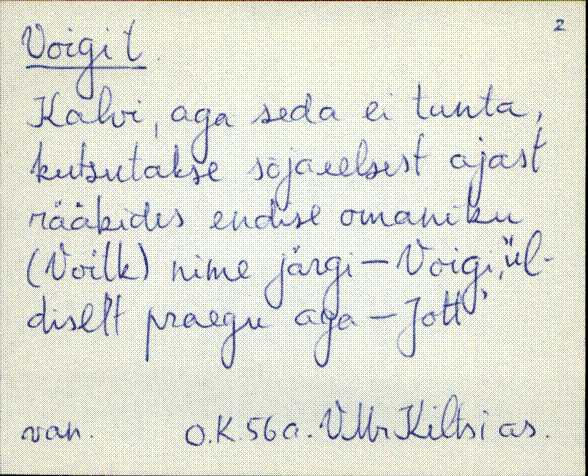 2
Voigi t.
Kalvi, aga seda ei tunta,
kutsutakse sõjaeelsest ajast
rääkides endise omaniku
(Voilk) nime järgi – Voigi, ül-
diselt praegu aga – Jott
van. O.K. 56 a. VMr Kiltsi as.